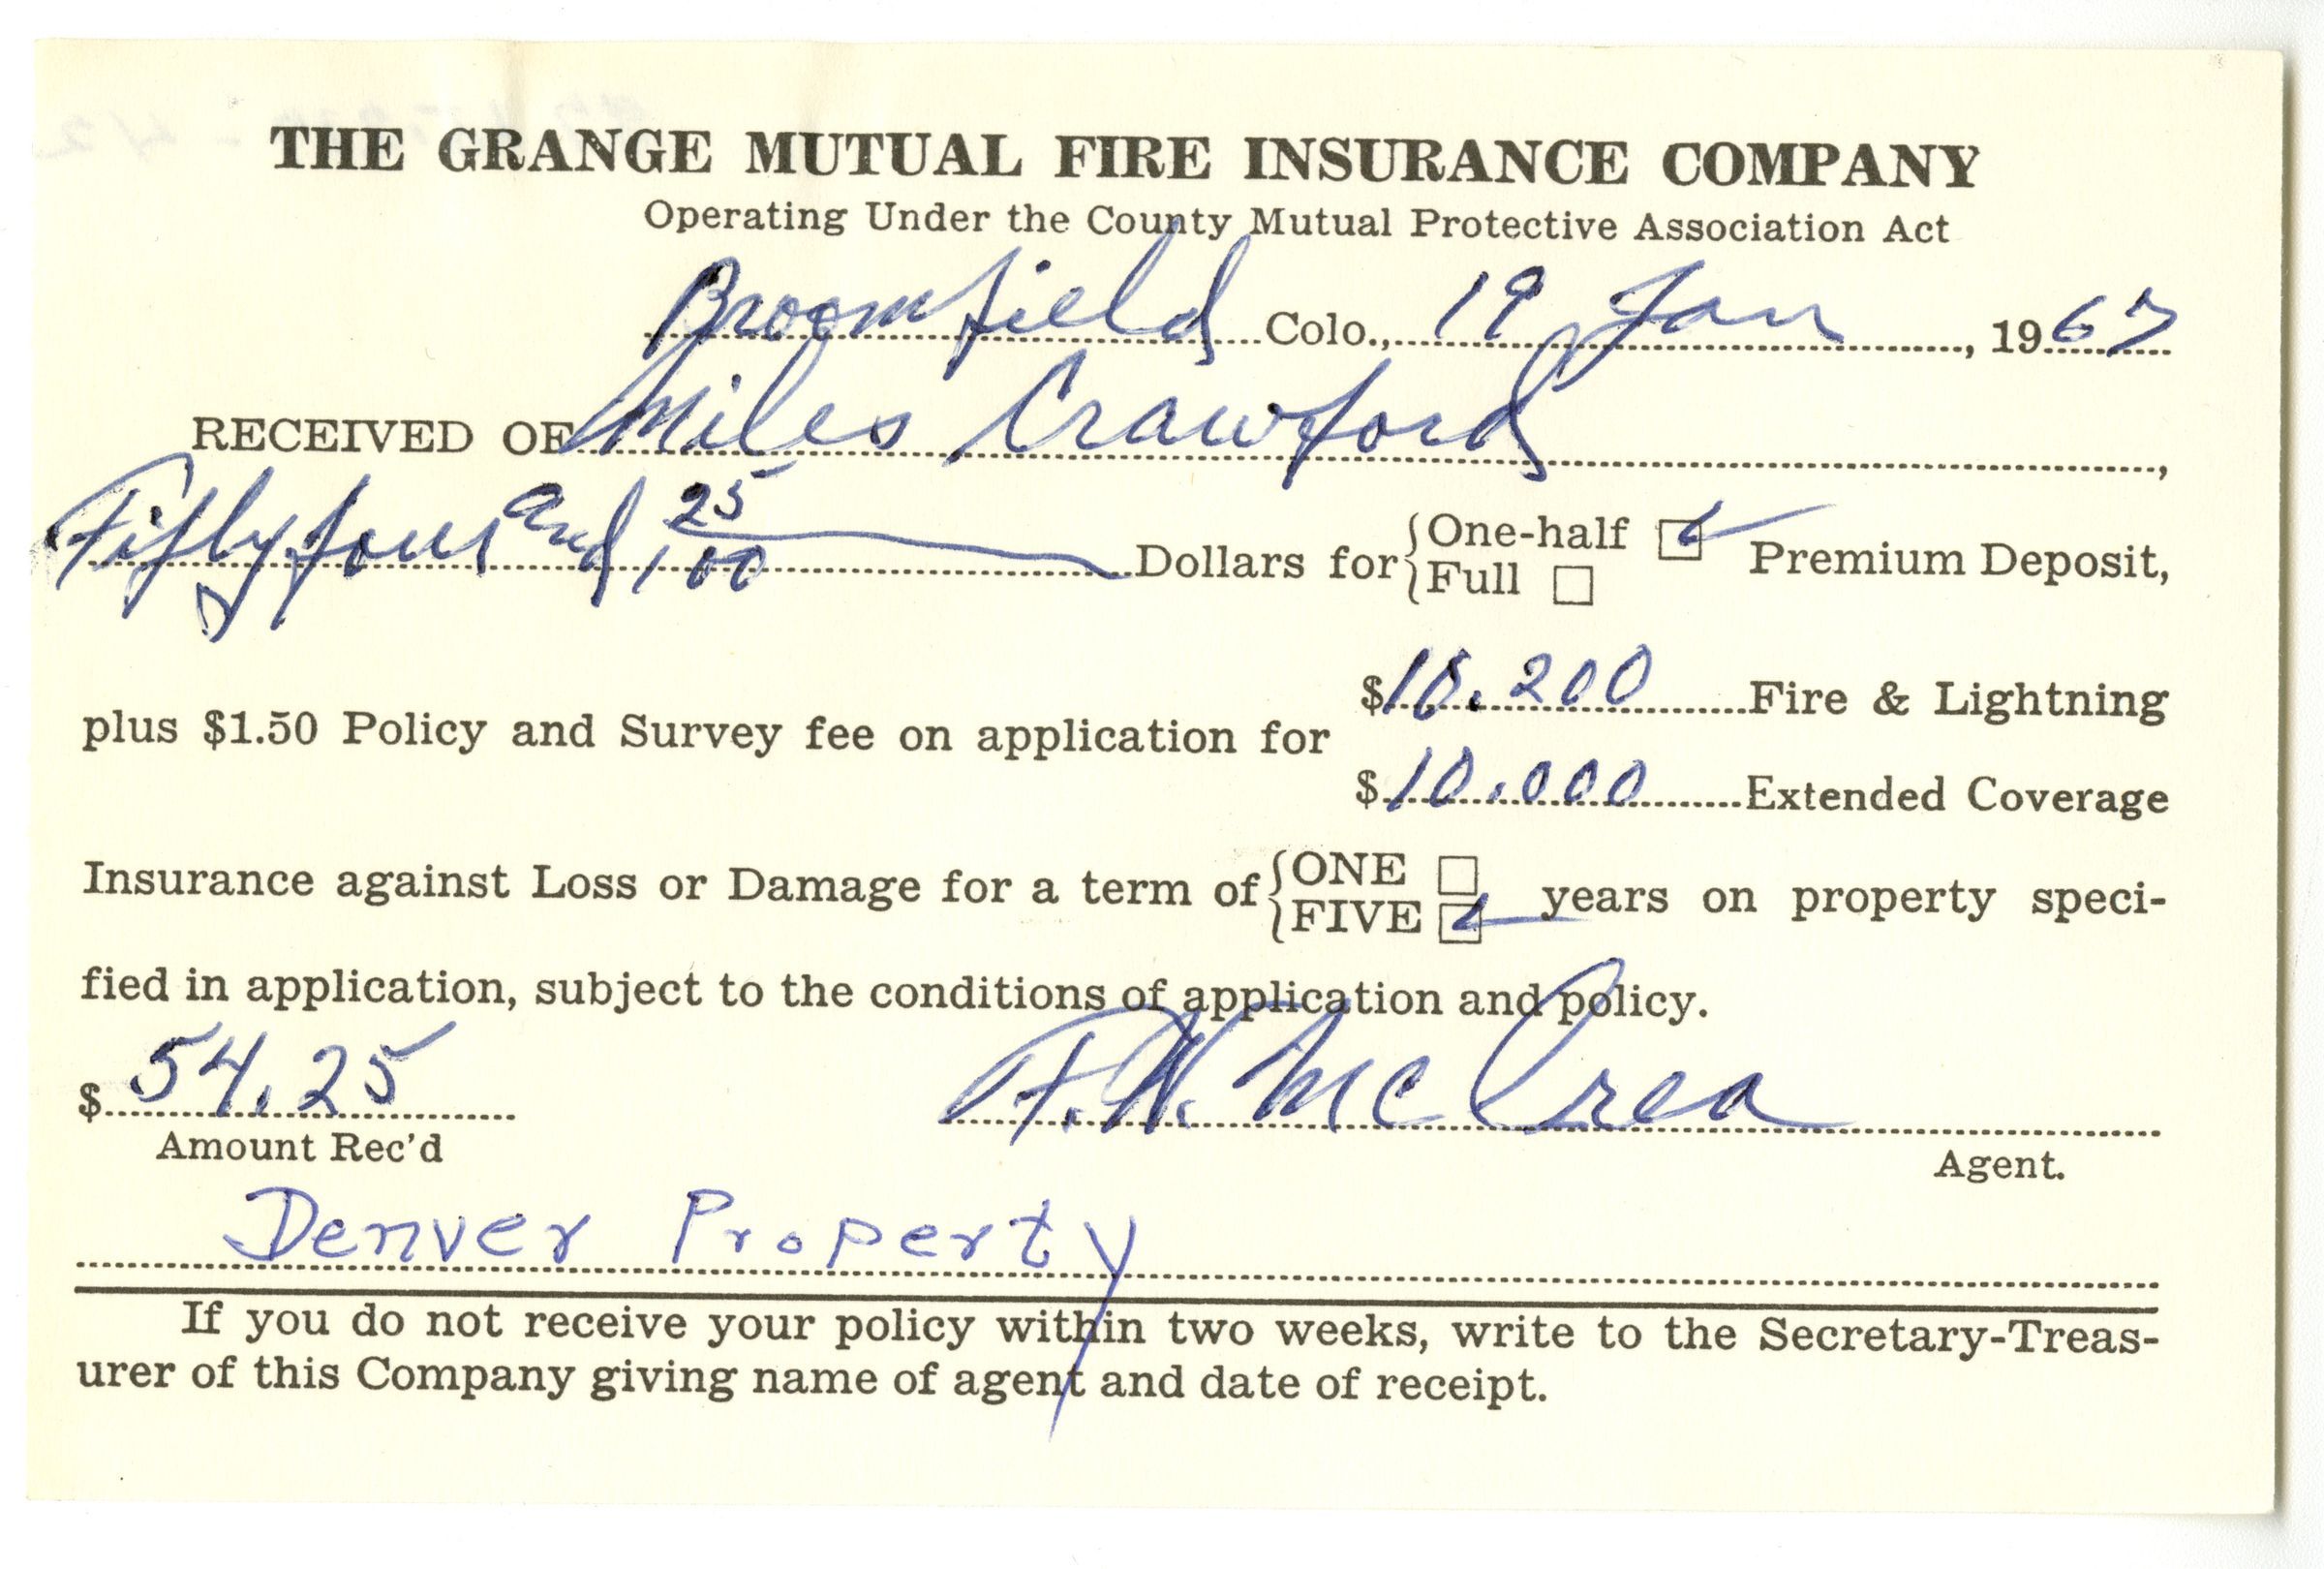 THE GRANGE MUTUAL FIRE INSURANCE COMPANY
Operating Under the County Mutual Protective Association Act
Broomfield Colo., 19 Jan, 1967
RECEIVED OF Miles Crawford,
Fifty four and 25/100 Dollars for One-half ☑ Premium Deposit,
Full ☐
$ Fire & Lightning
plus $1.50 Policy and Survey fee on application for
$10.000 Extended Coverage
Insurance against Loss or Damage for a term of ONE ☐
FIVE ☑ years on property speci-
fied in application, subject to the conditions of application and policy.
$54.25 F.W. McCrea
Amount Rec'd Agent.
Denver Property
If you do not receive your policy within two weeks, write to the Secretary-Treas-
urer of this Company giving name of agent and date of receipt.